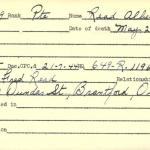 9 Rank Pte Name Read Albe
Date of death May 2
Dec. OFC. d 21-7-44 649-R.1196
Fred Read Relationship
Dundas St, Brantford, O
ed in